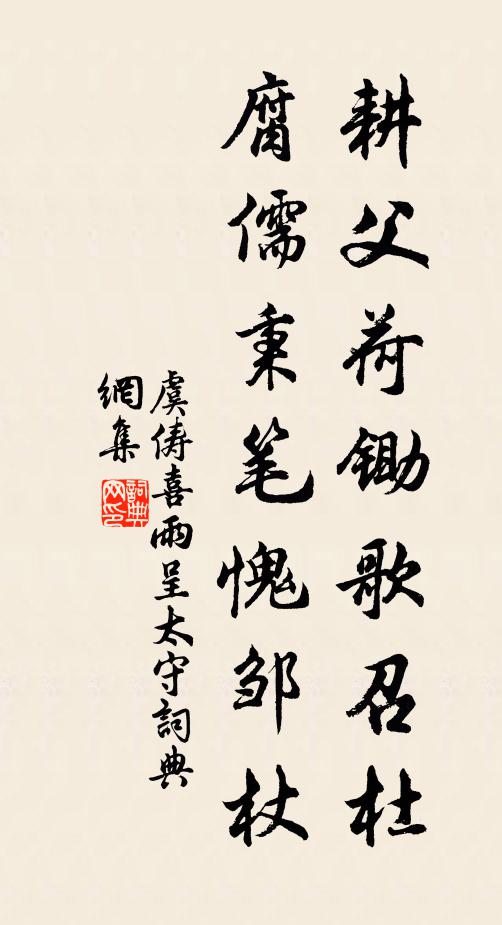 耕父荷锄歌召杜
腐儒秉笔愧邹杖
虞俦喜雨呈太守詞典
網集
詞典網印